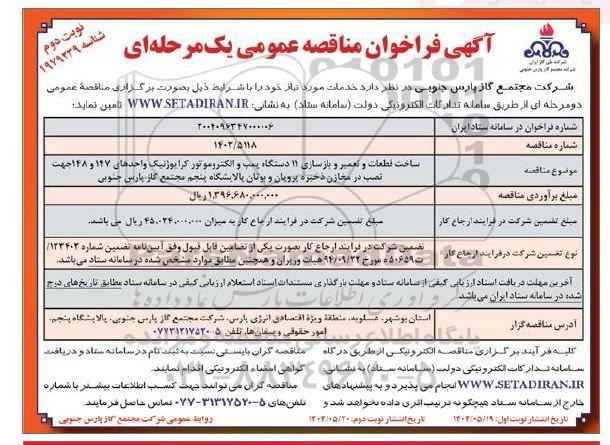 نوبت دوم
شناسه ۱۹۷۹۳۳۹
آگهی فراخوان مناقصه عمومی یک مرحله‌ای
شرکت ملی گاز ایران
شرکت مجتمع گاز پارس جنوبی
شرکت مجتمع گاز پارس جنوبی در نظر دارد خدمات مورد نیاز خود را با شرایط ذیل بصورت برگزاری مناقصهٔ عمومی
دومرحله ای از طریق سامانه تدارکات الکترونیکی دولت (سامانه ستاد) به نشانی: WWW.SETADIRAN.IR تامین نماید:
شماره فراخوان در سامانه ستاد ایران ۲۰۰۴۰۹۶۳۴۷۰۰۰۰۰۶
شماره مناقصه ۱۴۰۳/۵۱۱۸
موضوع مناقصه ساخت قطعات و تعمیر و بازسازی ۱۱ دستگاه پمپ و الکتروموتور کرایوژنیک واحدهای ۱۴۷ و ۱۴۸ جهت
نصب در مخازن ذخیره پروپان و بوتان پالایشگاه پنجم مجتمع گاز پارس جنوبی
مبلغ برآوردی مناقصه ۱،۳۹۶،۶۸۰،۰۰۰،۰۰۰ ریال
مبلغ تضمین شرکت در فرایند ارجاع کار مبلغ تضمین شرکت در فرایند ارجاع کار به میزان ۴۵،۰۳۴،۰۰۰،۰۰۰ ریال می باشد.
نوع تضمین شرکت درفرایند ارجاع کار تضمین شرکت در فرایند ارجاع کار بصورت یکی از تضامین قابل قبول وفق آیین‌نامه تضمین شماره ۱۲۳۴۰۲/
ت۵۰۶۵۹ ه مورخ ۹۴/۰۹/۲۲ هیات وزیران و همچنین مطابق موارد مشخص شده در سامانه ستاد می‌باشد.
آخرین مهلت دریافت اسناد ارزیابی کیفی از سامانه ستاد و مهلت بارگذاری مستندات اسناد استعلام ارزیابی کیفی در سامانه ستاد مطابق تاریخ‌های درج
شده در سامانه ستاد ایران می‌باشد.
آدرس مناقصه گزار استان بوشهر، عسلویه، منطقهٔ ویژهٔ اقتصادی انرژی پارس، شرکت مجتمع گاز پارس جنوبی، پالایشگاه پنجم،
امور حقوقی و پیمان‌ها، تلفن ۵-۰۷۷۳۱۳۱۷۵۲۰
کلیه فرآیند برگزاری مناقصه الکترونیکی از طریق درگاه
سامانه تدارکات الکترونیکی دولت (سامانه ستاد) به نشانی:
WWW.SETADIRAN.IR انجام می پذیرد و به پیشنهادهای
خارج از سامانه ستاد هیچگونه ترتیب اثری داده نخواهد شد و
مناقصه گران بایستی نسبت به ثبت نام در سامانه ستاد و دریافت
گواهی امضاء الکترونیکی اقدام نمایند.
مناقصه گران می توانند جهت کسب اطلاعات بیشتر با شماره
تلفن‌های ۵-۰۷۷-۳۱۳۱۷۵۲۰ تماس حاصل فرمایند.
تاریخ انتشار نوبت اول: ۱۴۰۴/۰۵/۱۹ تاریخ انتشار نوبت دوم: ۱۴۰۴/۰۵/۲۰ روابط عمومی شرکت مجتمع گاز پارس جنوبی